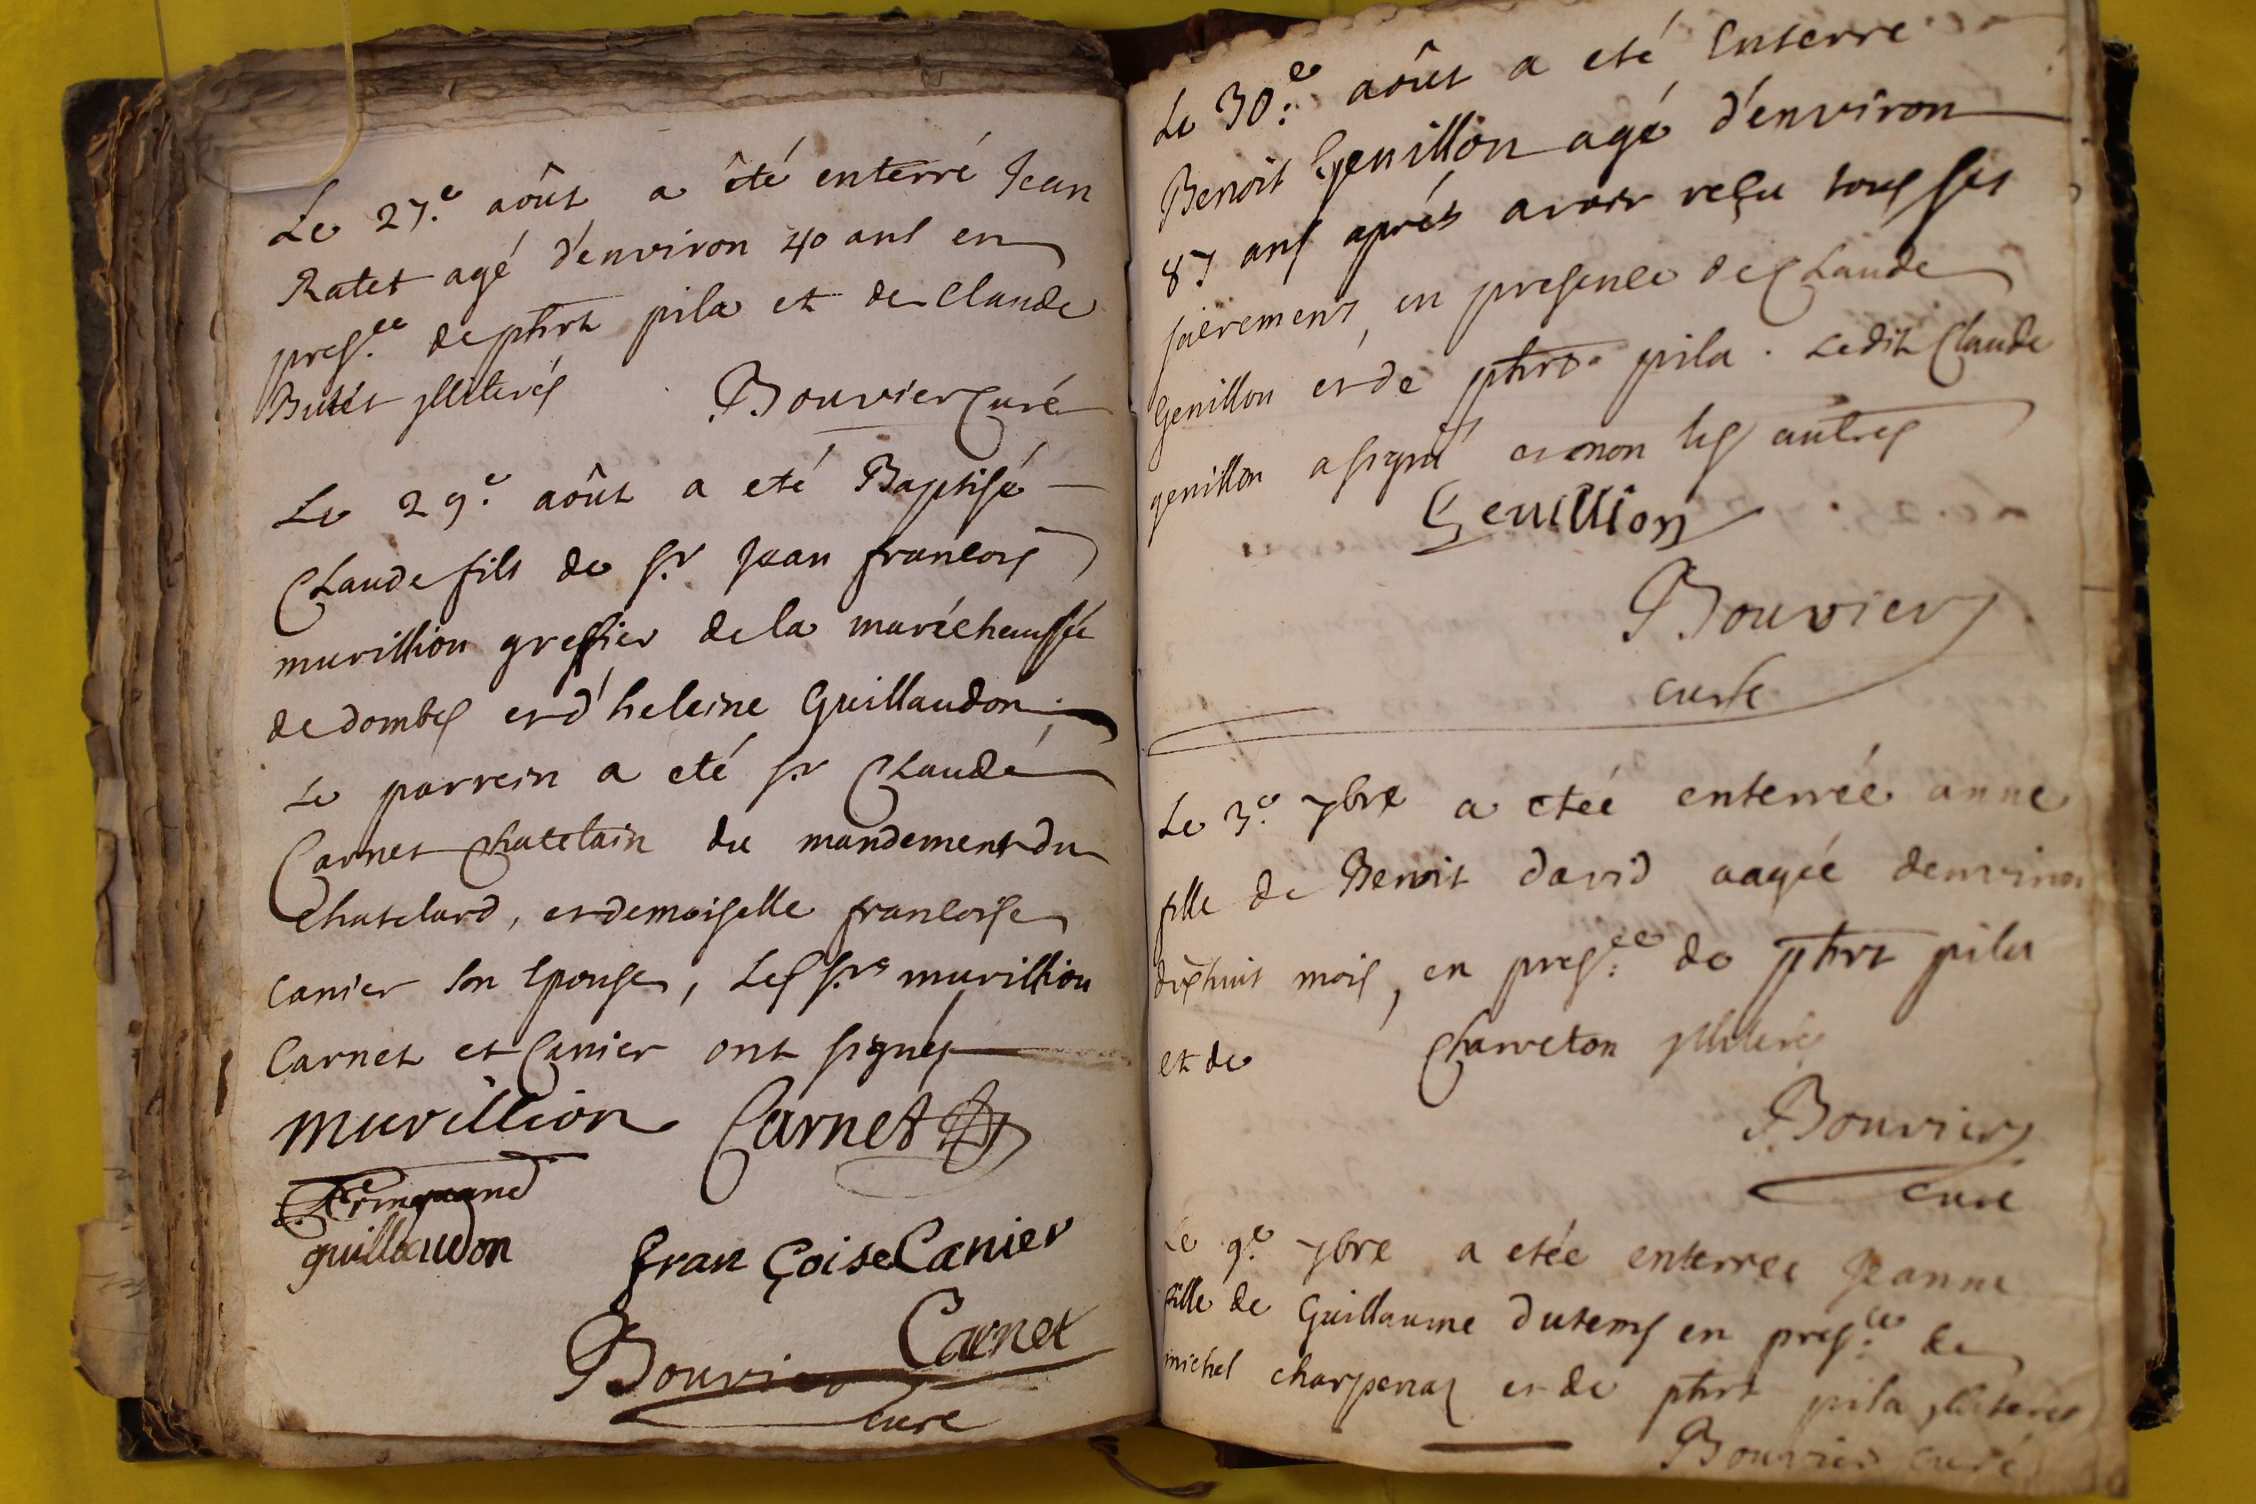 Le 27.e aôut a été enterré Jean
Ratet agé d'environ 40 ans en
pres.ce de phrt pila et de Claude
Butét ylliterés
Bouvier Curé
Le 29.e aôut a eté Baptisé
Claude fils de sr. Jean francois
murillion greffier de la maréchaussée
de dombes et d'heleine Guillaudon.
Le parrein a eté sr Claude
Carnet chatelain du mandement du
Chatelard, et demoiselle francoise
Canier son Epouse, Les srs murillion
Carnet et Canier ont signés
murillion Carnet
guillaudon
françoise Canier
Carnet
Bouvier
curé
Le 30.e aôut a eté Enterré
Benoit Genillon agé d'environ
87 ans aprés avoir reçu tous ses
sacrements, en presence de Claude
Genillon et de phrt pila. Ledit Claude
genillon a signé et non les autres
Genillion
Bouvier
curé
Le 3.e 7bre a eteé enterrée anne
fille de Benoit david aagée denviron
dixhuit mois, en pres.ce de phrt pila
et de Charveton ylliteré
Bouvier
curé
Le 9.e 7bre a etée enterrée Jeanne
fille de Guillaume dutems en pres.ce de
michel charpenay et de phrt pila ylliterés
Bouvier curé